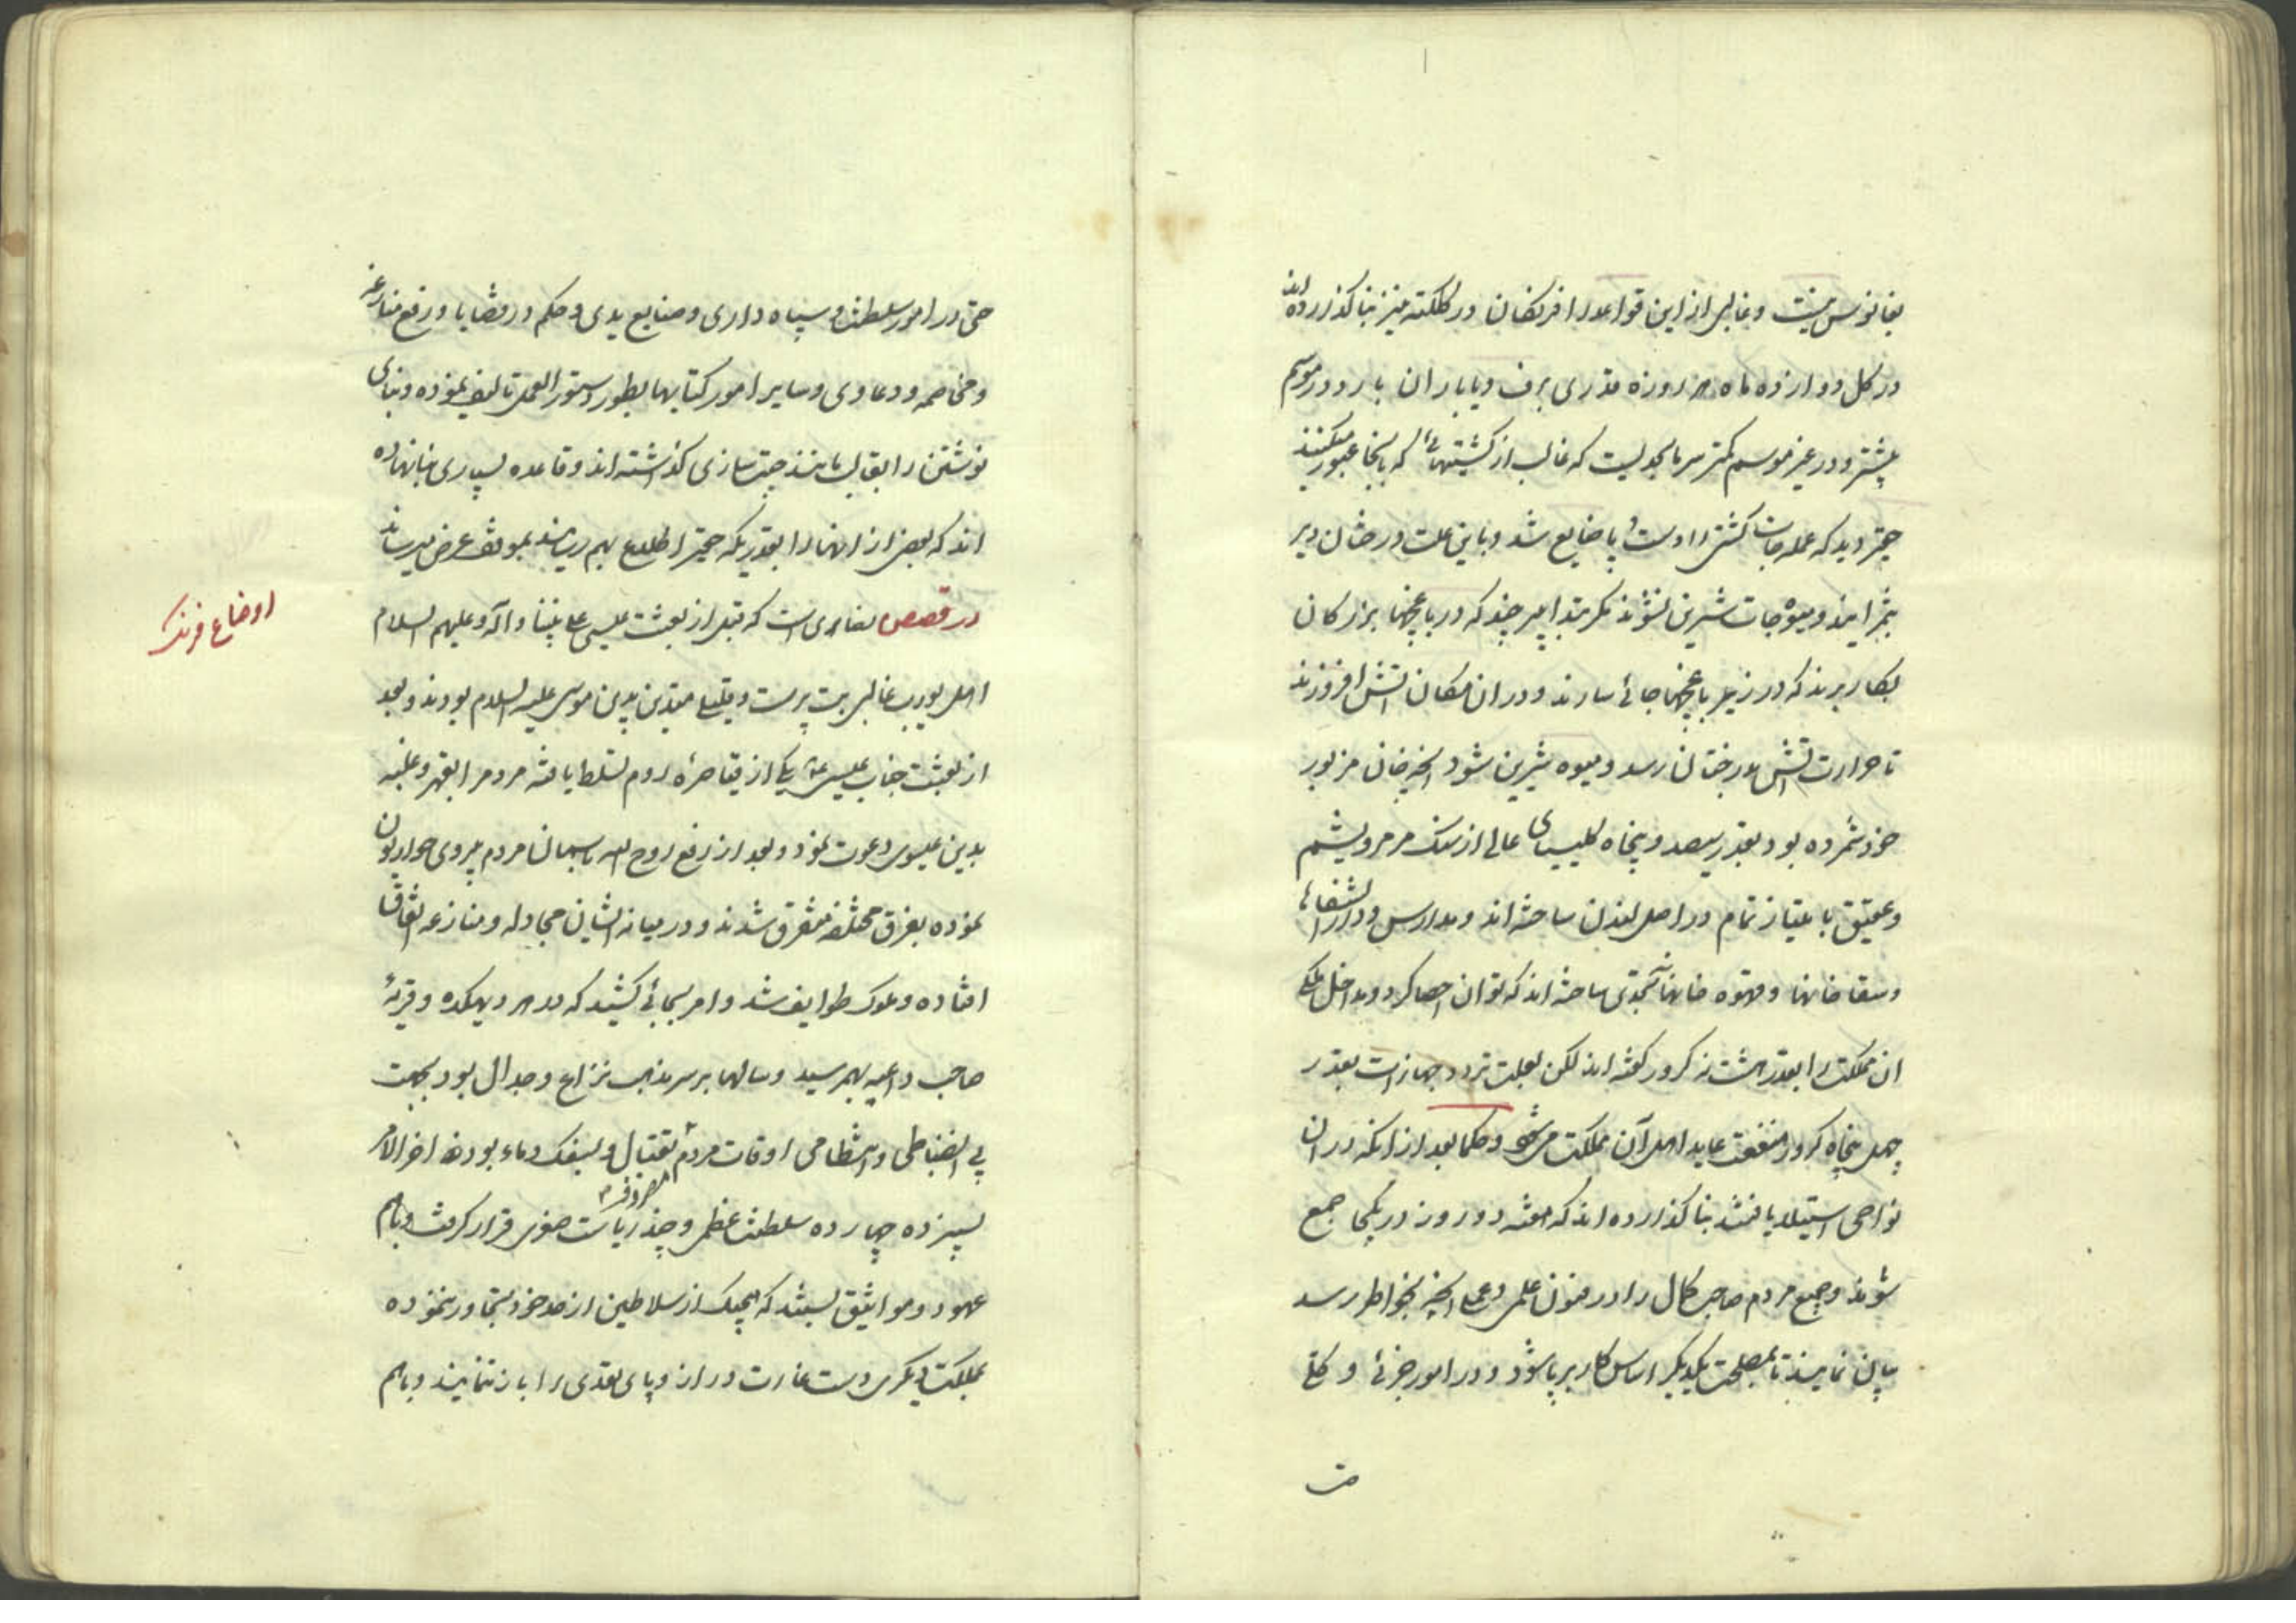 بفانوس نیست و غالبی از این قواعد را افرنگان در کلکته نیز بنا گذارده‌اند
در کل دوازده ماه هر روزه قدری برف و یا باران بارد و در موسم
بیشتر و در غیر موسم کمتر سرما بحدیست که غالب از کشتیهائی که بانجا عبور میکنند
حقیر دید که عمله‌جات کشتی را دست و پا ضایع شده و باین علت درختان دیر
بثمر ایند و میوه‌جات شیرین نشوند مگر بتدابیر چند که در باغچها بزرکان
بکار برند که در زیر باغچها جائی سازند و در ان مکان اتش افروزند
تا حرارت اتش بدرختان رسد و میوه شیرین شود انچه خان مزبور
خود شمرده بود بقدر سیصد و پنجاه کلیسیای عالی از سنک مرمر و یشم
و عقیق با امتیاز تمام در اصل لندن ساخته‌اند و مدارس و دارالشفاها
و سقاخانها و قهوه خانها بحدی ساخته‌اند که نتوان احصا کرد و مداخل ملکی
ان مملکت را بقدر هشت نه کرور گفته‌اند لکن بعلت تردد جهازات بقدر
چهل پنجاه کرور منفعت عاید اهل آن مملکت می‌شود و حکما بعد از انکه در ان
نواحی استیلا یافتند بنا گذارده‌اند که هفته دو روز در یکجا جمع
شوند و جمیع مردم صاحب کمال را در فنون علمی و عملی انچه بخواطر رسد
بیان نمایند تا بمصلحت یکدیگر اساس کار برپا شود و در امور جزئی و کلی
حتی در امور سلطنت و سپاه داری و صنایع یدی و حکم در قضایا و رفع منازعه
و مخاصمه و دعاوی و سایر امور کتابها بطور دستورالعمل تالیف نموده و بنای
نوشتن را بقالب مانند چیت سازی گذاشته‌اند و قاعده بسیاری بنا نهاده
اند که بعضی از انها را بقدریکه حقیر اطلاع بهم رسانید بموقف عرض میرساند
در قصص نصاری است که قبل از بعثت عیسی علی نبینا و آله و علیهم السلام
اهل یورپ غالبی بت پرست و قلیلی متدین بدین موسی علیه السلام بودند و بعد
از بعثت جناب عیسی ع یکی از قیاصره روم تسلط یافته مردم را بقهر و غلبه
بدین عیسوی دعوت نمود و بعد از رفع روح الله باسمان مردم پیروی حواریون
نموده بفرق مختلفه متفرق شدند و در میانه ایشان مجادله و منازعه اتفاق
افتاده و ملوک طوایف شد و امر بجائی کشید که در هر دهکده و قریهٔ
صاحب داعیه بهم رسید و سالها بر سر مذهب نزاع و جدال بود بجهت
بی انضباطی و انتظامی اوقات مردم بقتال و بسفک دماء مصروف بوده اخرالامر
بسیزده چهارده سلطنت عظمی و چند ریاست صغری قرار گرفت و باهم
عهود و مواثیق بستند که هیچیک از سلاطین از حد خود تجاوز ننموده
بمملکت دیگری دست غارت دراز و پای تعدی را باز ننمایند و باهم
اوضاع فرنک